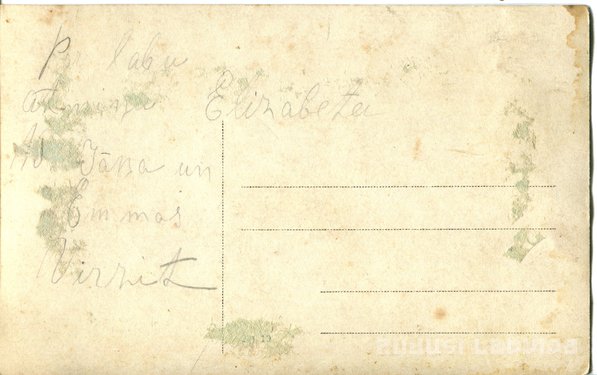 Par labu
atmiņu Elizabeta
No Jāņa un
Emmas
Virzit